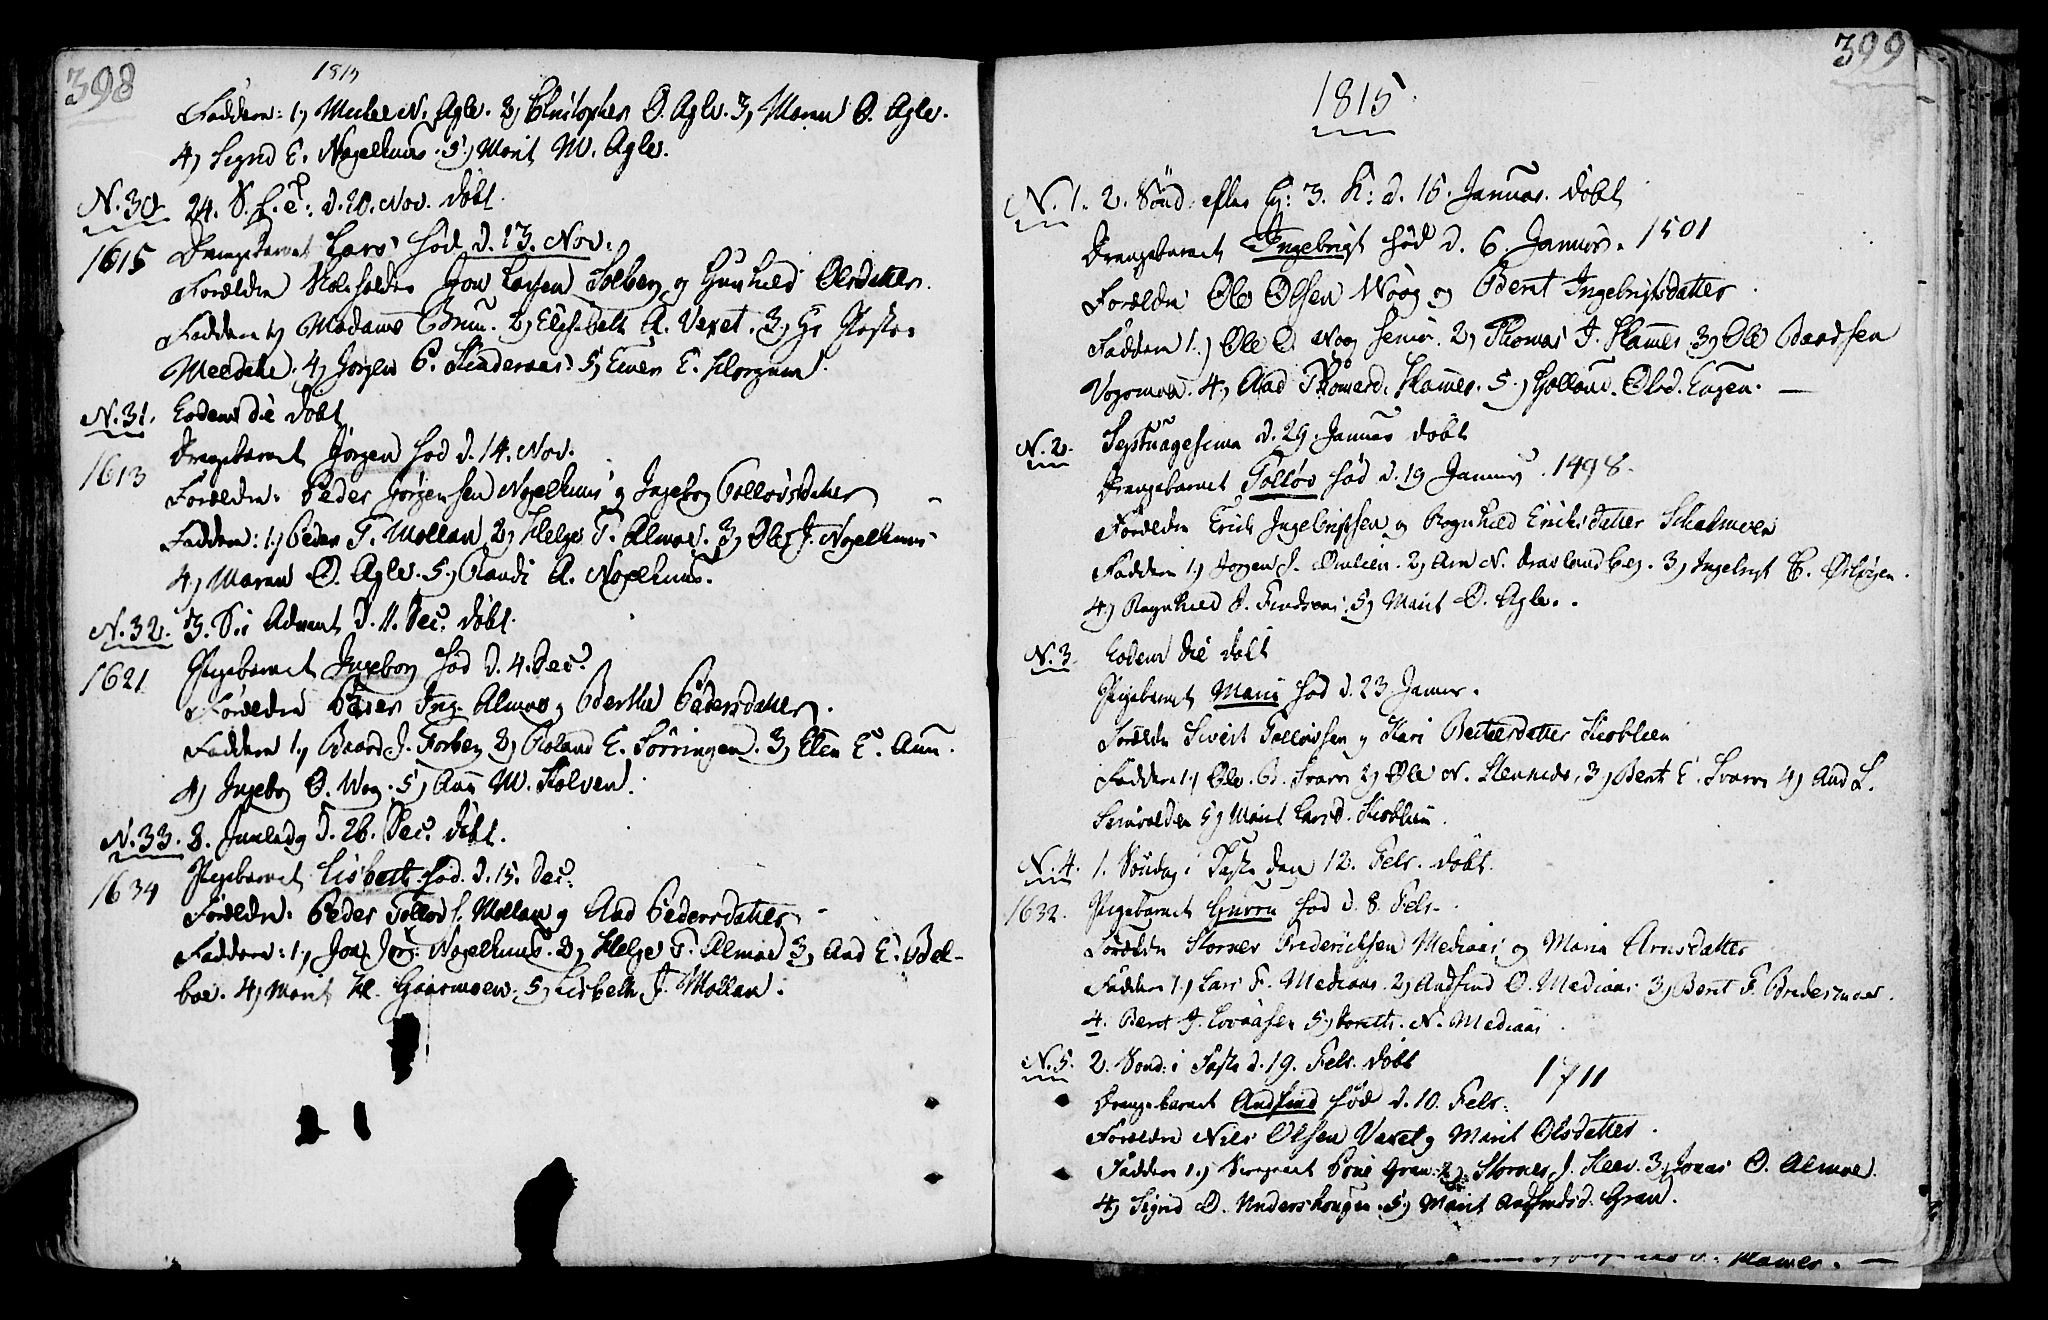 398
181
Faddere: 1, Mickel N. Agle. 2, Christopher O. Agle. 3, Maren O. Agle.
4, Sigrid E. Nagelhuus. 5, Marit M. Agle.
N. 30. 24. S. f. T: d. 20. Nov. døbt.
1615 Drengebarnet Lars fød d. 13. Nov.
Forældre Jon Larsen Solberg og Gunhild Olsdatter.
Faddere 1, Madame Brun. 2, Elisabeth A. Vexet. 3, Hr
4, Jørgen P. Kinderaas. 5, Einer E. Horgum.
N. 31. Eodem die døbt
1613 Drengebarnet Jørgen fød d. 14. Nov.
Forældre: Peder Jørgensen Nagelhuus og Ingeborg Tollovsdatter
Faddere: 1, Peder T. Mollan 2, Helge T. Almoe. 3, Ole J. Nagelhuus
4, Maren O. Agle. 5, Randi A. Nagelhuus.
N. 32. 3. S. i Advent d. 11. Dec. døbt.
1621 Pigebarnet Ingeborg fød d. 4. Dec.
Forældre Peder Ing. Almoe og Berthe Pedersdatter.
Faddere 1, Baard J. Forberg 2, Roland E. Sørringen. 3, Elen E. Aun.
4, Ingebor O. Wog. 5, Ane M. Holven.
N. 33. 2. Juuledag d. 26. Dec. døbt.
1634 Pigebarnet Lisbeth fød d. 15. Dec.
Forældre: Peder Tollovs. Mollan og Aad Pedersdatter
Faddere: 1, Jon Jør. Nagelhuus. 2, Helge T. Almoe 3, Aad E. Odel-
boe. 4, Marit H. Gaarmoen. 5, Lisbeth J. Mollan.
399
1815
N. 1. 2. Sønd. efter H: 3. K: d. 15. Januar. døbt
Drengebarnet Ingebrigt fød d. 6. Januar. 1501
Forældre Ole Olsen Woog og Berit Ingebrigtsdatter.
Faddere 1, Ole O. Woog senior. 2, Thomas J. Hammer 3, Ole Baardsen
Vogomoe. 4, Aad Thomasd. Hammer. 5, Gollaug Olsd. Engen.
N. 2. Septuagesima d. 29. Januar døbt
Drengebarnet Tolløv fød d. 19 Januar. 1498.
Forældre Erich Ingebrigtsen og Ragnhild Erichsdatter Schalmoen
Faddere 1, Jørgen J. 2, Arn N. 3, Ingebrigt E.
4, Ragnhild J. 5, Marit O. Agle.
N. 3. Eodem die døbt
Pigebarnet Marit fød d. 23 Januar.
Forældre Sivert Tollovsen og Kari Bertelsdatter
Faddere 1, Ole B. 2, Ole N. 3, Berit E. 4, Aad L.
5, Marit Larsd.
N. 4. 1. Søndag i Faste den 12. Febr. døbt.
1632. Pigebarnet Guru fød d. 8. Febr.
Forældre Storner Frederichsen Mediaas og Maria Arnsdatter
Faddere 1, Lars F. Mediaas. 2, Andfind O. Mediaas 3, Berit F. Bredesmoe.
4. Berit J. 5, N. Mediaas
N. 5. 2. Sønd: i Faste d. 19. Febr. døbt 1711
Drengebarnet Andfind fød d. 10. Febr.
Forældre Nils Olsen Vexet og Marit Olsdatter.
Faddere 1, Sergeant Gran. 2, Storner J. 3, Jonas O. Almoe.
4, Sigrid O. 5, Marit Andfindsd. Gran.